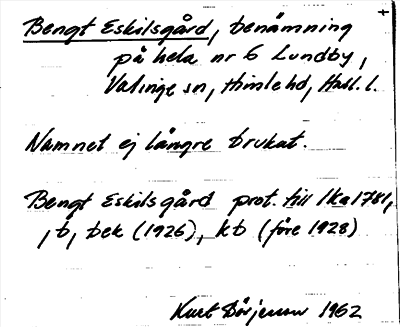 Bengt Eskilsgård, benämning
på hela nr 6 Lundby,
Valinge sn, Himle hd, Hall. l.
Namnet ej längre brukat.
Bengt Eskilsgård prot. till lka 1781,
, b, bek (1926), kb (före 1928)
Kurt Börjesson 1962